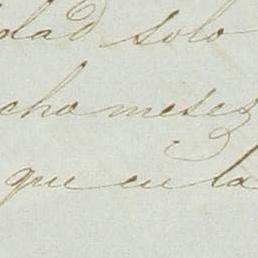 dad solo
cho meses
que en la